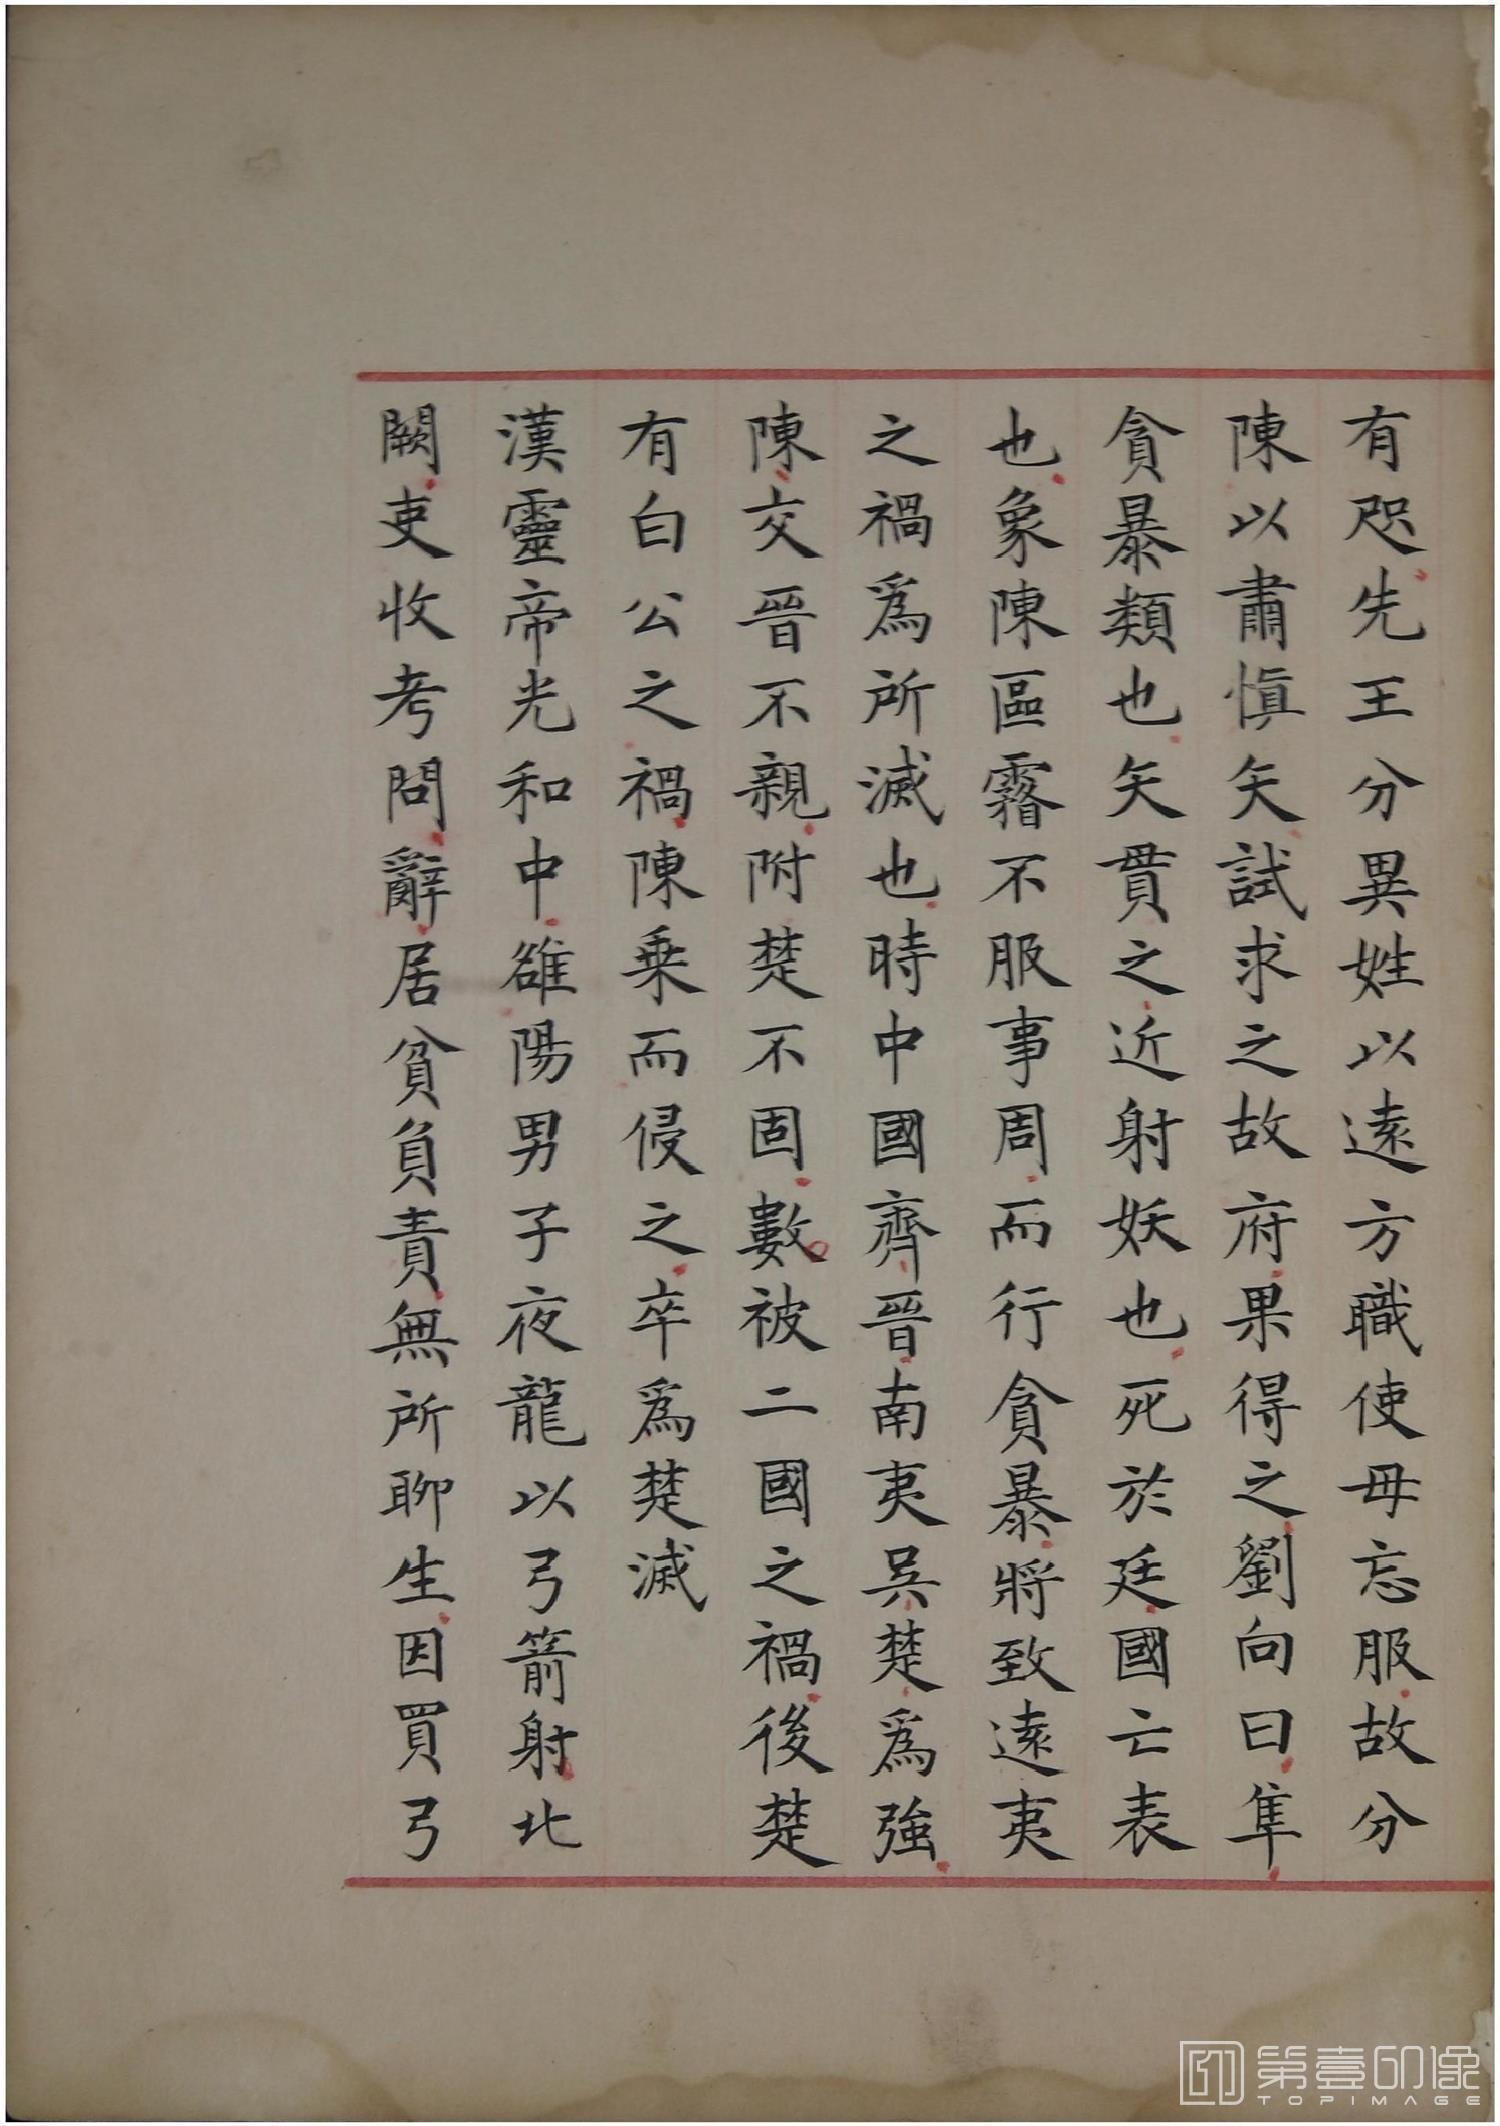 有咫先王分異姓以遠方職使毋忘服故分
陳以肅慎矢試求之故府果得之劉向曰隼
貪暴類也矢貫之近射妖也死於廷國亡表
也象陳區霿不服事周而行貪暴將致遠夷
之禍為所滅也時中國齊晉南夷吳楚為強
陳交晉不親附楚不固數被二國之禍後楚
有白公之禍陳乘而侵之卒為楚滅
漢靈帝光和中雒陽男子夜龍以弓箭射北
闕吏收考問辭居貧負責無所聊生因買弓
第壹印像
TOPIMAGE